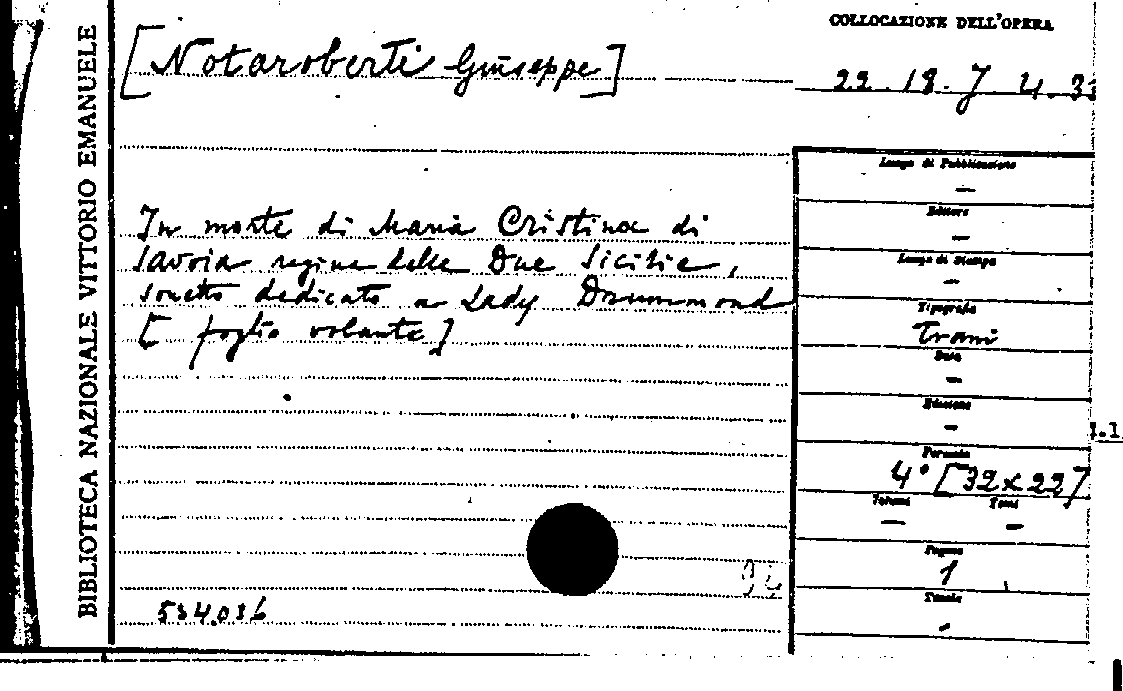 BIBLIOTECA NAZIONALE VITTORIO EMANUELE
[Notaroberti Giuseppe]
In morte di Maria Cristina di
Savoia regina delle Due Sicilie,
sonetto dedicato a Lady Drummond
[foglio volante]
534.036
COLLOCAZIONE DELL'OPERA
22. 18. 7 4. 33
Luogo di Pubblicazione
—
Editore
—
Luogo di Stampa
—
Tipografia
Trani
Data
—
Edizione
—
Formato
4° [32x22]
Volumi Tomi
— —
Pagine
1
Tavole
-